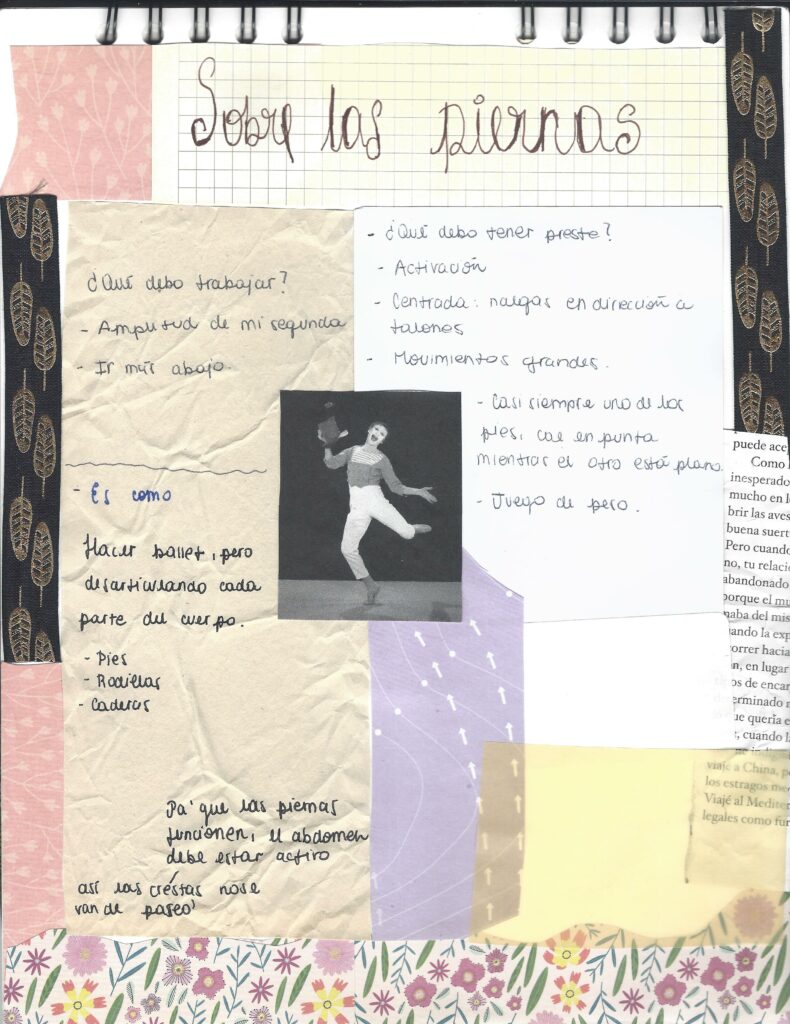 Sobre las piernas
¿Qué debo trabajar?
- Amplitud de mi segunda
- Ir más abajo.
- Es como
Hacer ballet, pero
desarticulando cada
parte del cuerpo.
- Pies
- Rodillas
- Caderas
Pa' que las piernas
funcionen, el abdomen
debe estar activo
así las créstas nose
van de paseo'
- ¿Qué debo tener preste?
- Activación
- Centrada: nalgas en dirección a
talones
- Movimientos grandes.
- Casi siempre uno de los
pies, cae en punta
mientras el otro está plano
- Juego de pero.
puede acep
Como l
inesperado
mucho en l
brir las aves
buena suert
Pero cuando
no, tu relaci
abandonado
porque el mu
naba del mis
uando la exp
correr hacia
n, en lugar
os de encar
erminado
ue quería e
, cuando l
viaje a China, p
los estragos me
Viajé al Mediter
legales como fur